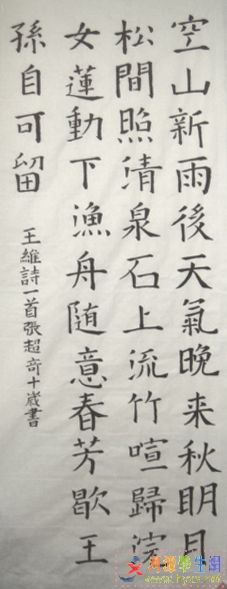 空山新雨後天氣晚来秋明月
松間照清泉石上流竹喧歸浣
女蓮動下漁舟随意春芳歇王
孫自可留
王維詩一首張超奇十歲書